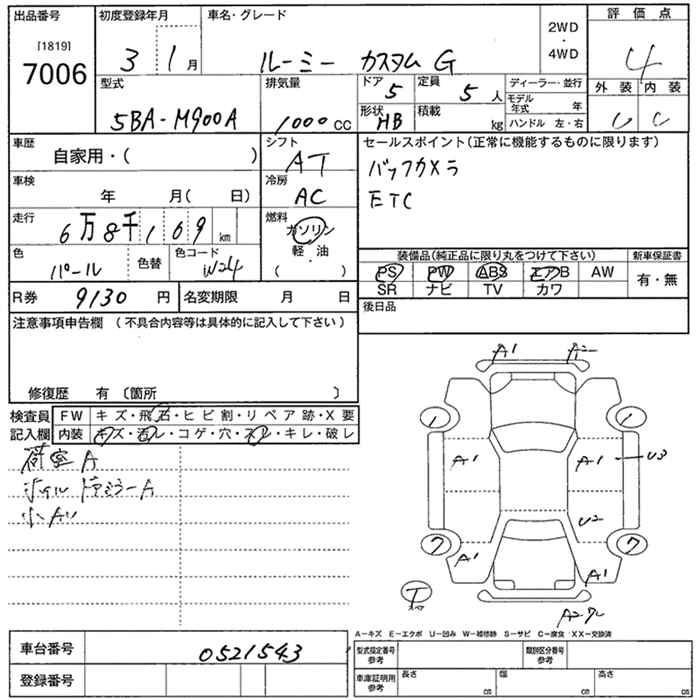 出品番号
[1819]
7006
初度登録年月
3 1 月
車名・グレード
ルーミー カスタム G
2WD
・
4WD
評価点
4
外装 内装
C
型式
5BA-M900A
排気量
1000 CC
ドア 5
定員 5 人
形状 HB
積載 kg
ディーラー・並行
モデル年式 年
ハンドル 左・右
車歴
自家用・( )
シフト
AT
車検
年 月( 日)
冷房
AC
走行
6万8千169 km
燃料
ガソリン
軽・油
( )
色
パール
色替
色コード
W24
R券 9130 円
名変期限 月 日
セールスポイント(正常に機能するものに限ります)
バックカメラ
ETC
装備品(純正品に限り丸をつけて下さい)
PS PW ABS エアB AW
SR ナビ TV カワ
新車保証書
有・無
後日品
注意事項申告欄 (不具合内容等は具体的に記入して下さい)
修復歴 有 〔箇所 〕
検査員
記入欄
FW キズ・飛石・ヒビ割・リペア跡・X要
内装 キズ・汚レ・コゲ・穴・スレ・キレ・破レ
荷室 A
ホイル ドアミラーA
小AU
A1 A2
1 1
A1 A1 U3
U2
7 7
A1 A1
T
A2
A-キズ E-エクボ U-凹み W-補修跡 S-サビ C-腐食 XX-交換済
車台番号 0521543
登録番号
型式指定番号
参考
類別区分番号
参考
車庫証明用
参考
長さ cm
幅 cm
高さ cm